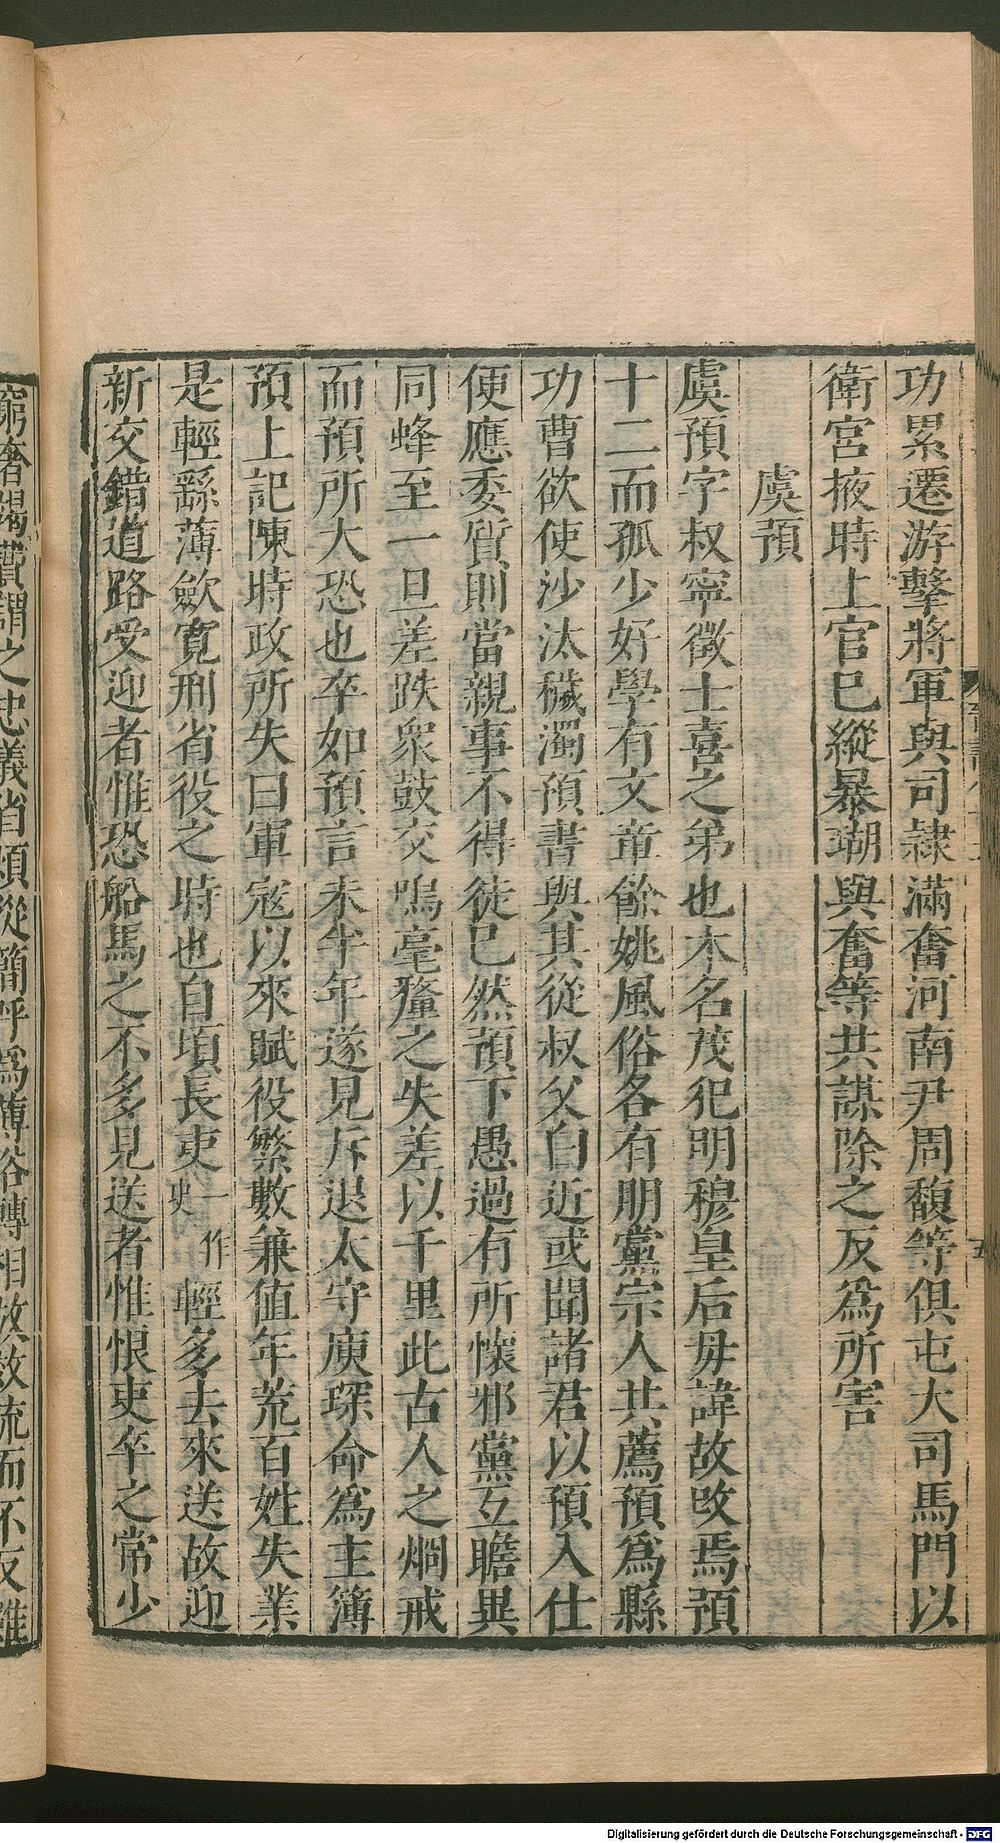 功累遷游擊將軍與司隸滿奮河南尹周馥等俱屯大司馬門以
衛宮掖時上官巳縱暴瑚與奮等共謀除之反爲所害
虞預
虞預字叔寧徵士喜之弟也本名茂犯明穆皇后母諱故改焉預
十二而孤少好學有文章餘姚風俗各有朋黨宗人共薦預爲縣
功曹欲使沙汰穢濁預書與其從叔父白近或聞諸君以預入仕
便應委質則當親事不得徒巳然預下愚過有所懷邪黨互瞻異
同蜂至一旦差跌衆鼓交鳴毫釐之失差以千里此古人之烱戒
而預所大恐也卒如預言未半年遂見斥退太守庾琛命爲主簿
預上記陳時政所失曰軍寇以來賦役繁數兼值年荒百姓失業
是輕繇薄歛寛刑省役之時也自頃長吏一作史輕多去來送故迎
新交錯道路受迎者惟恐船馬之不多見送者惟恨吏卒之常少
窮奢竭費謂之忠義省煩從簡呼爲薄俗轉相放效流而不反雖
Digitalisierung gefördert durch die Deutsche Forschungsgemeinschaft - DFG